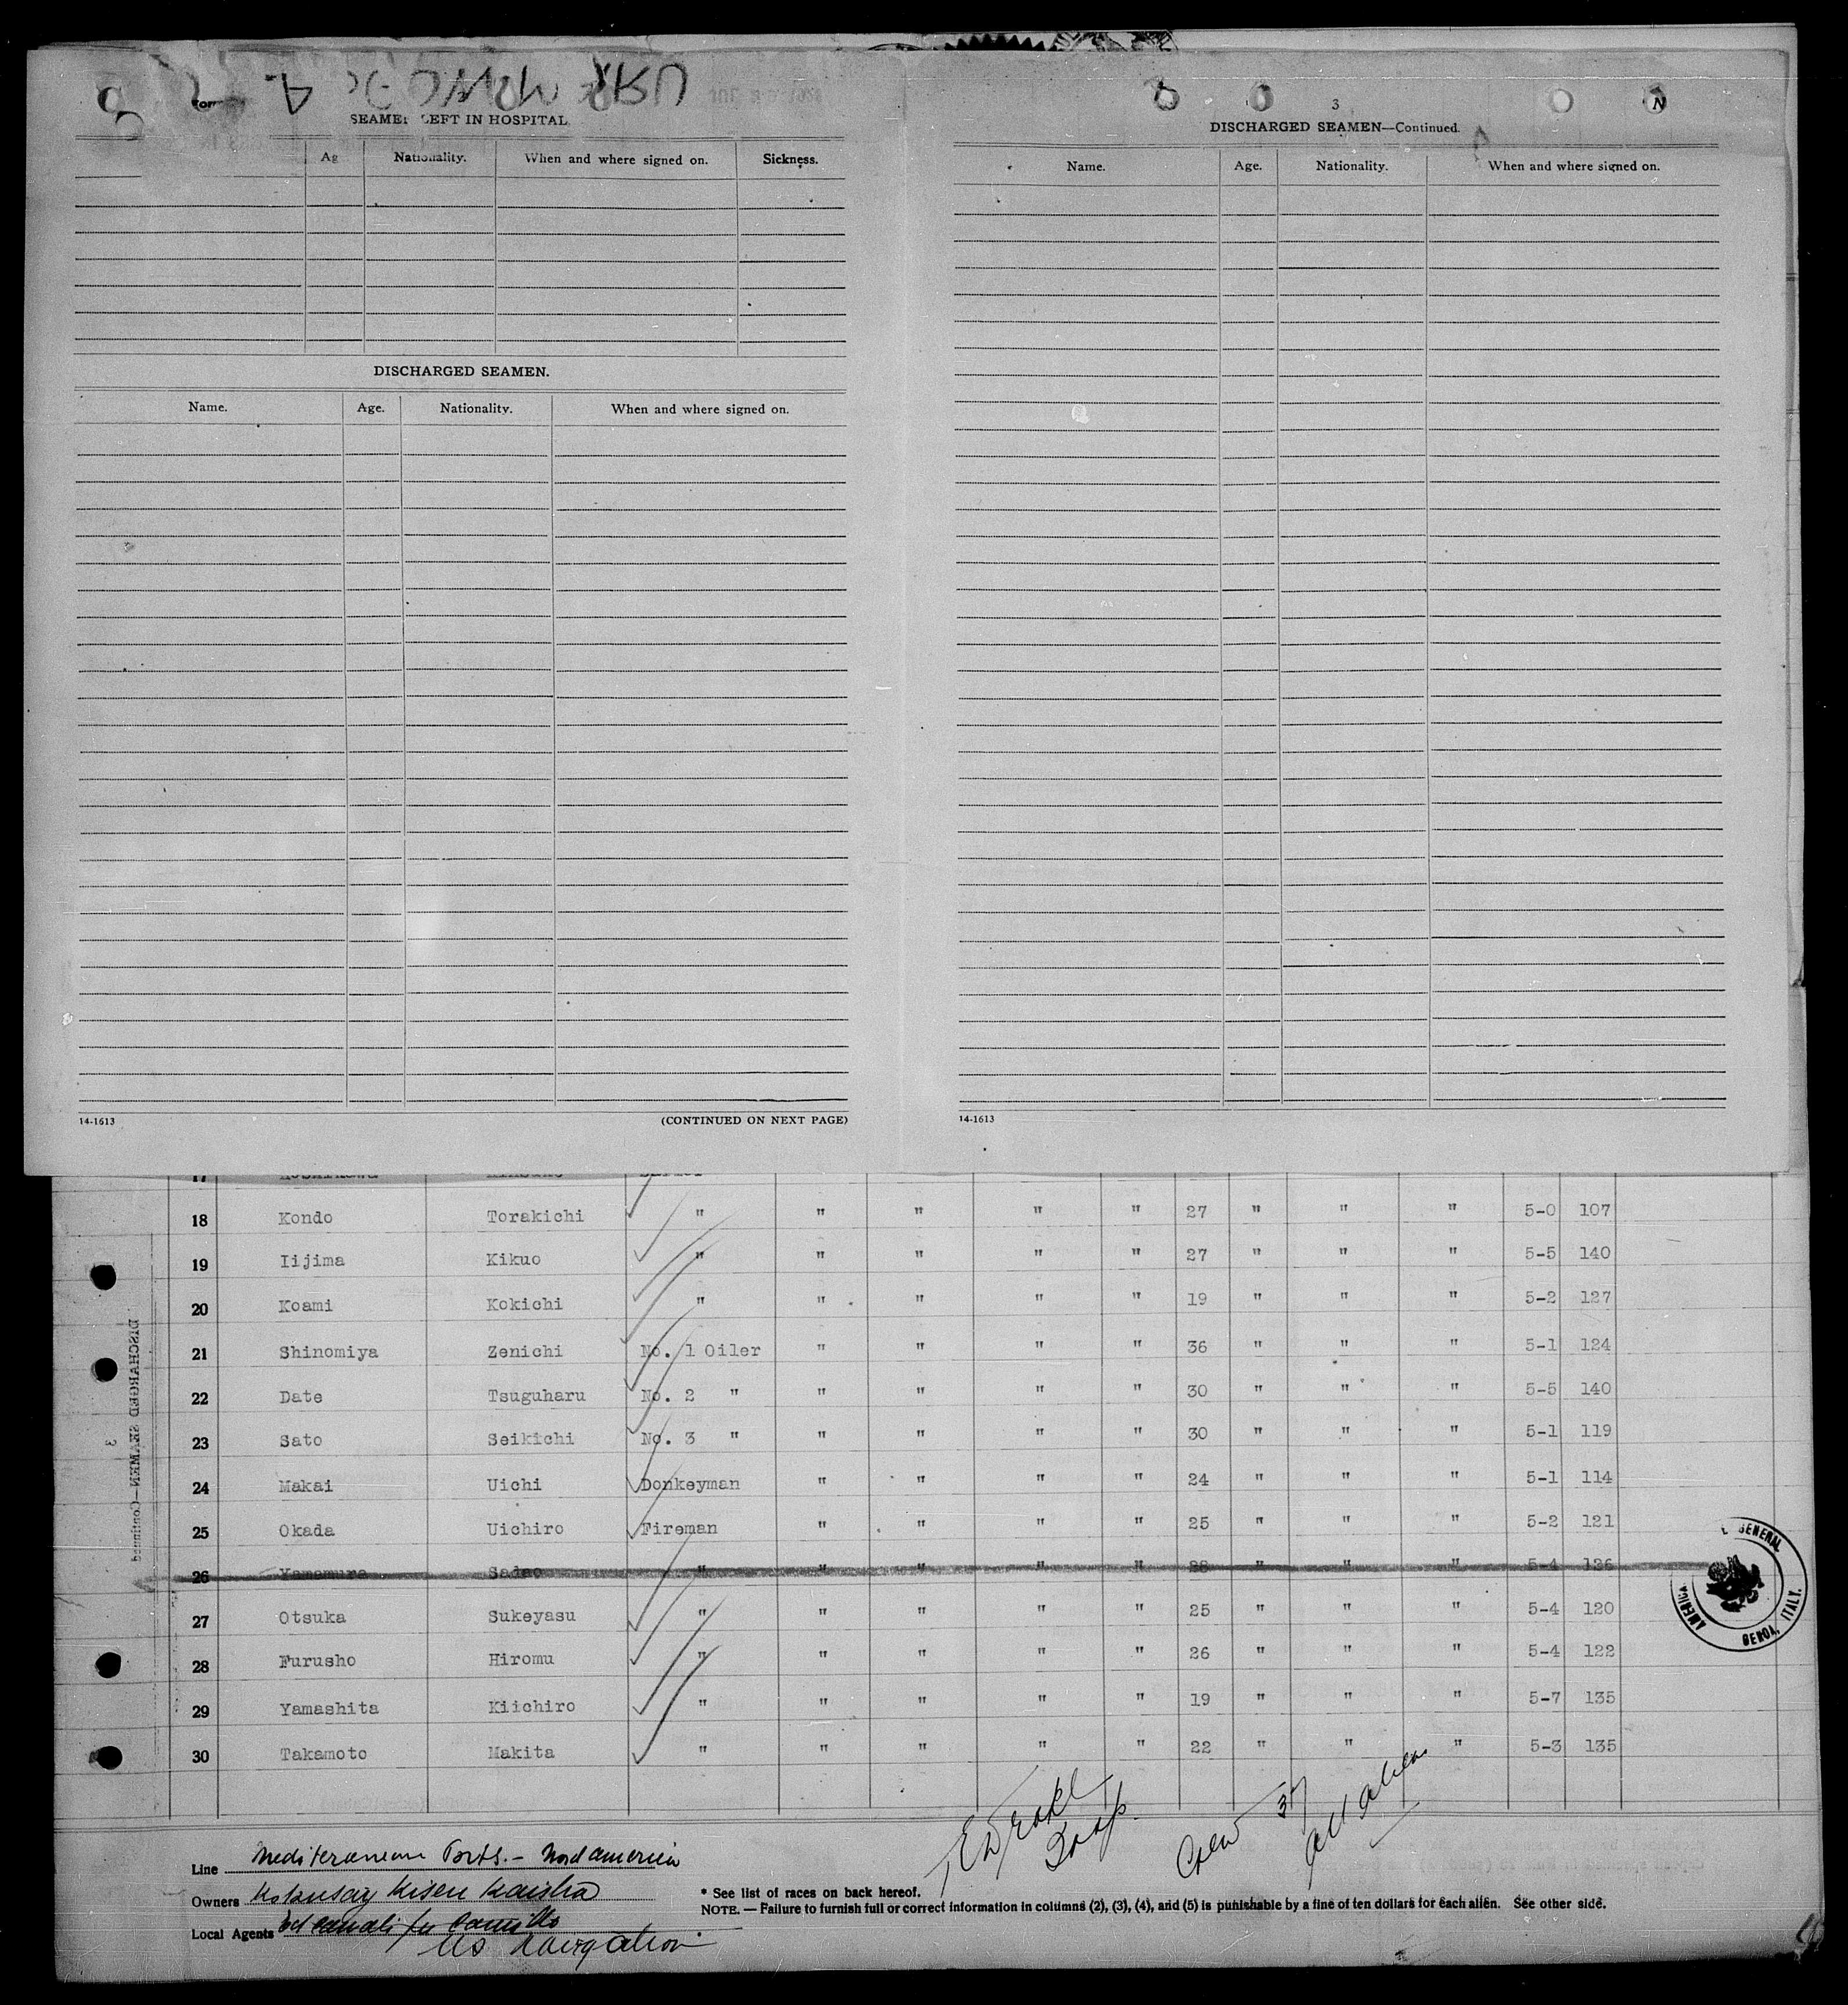 SEAMEN LEFT IN HOSPITAL
Nationality. When and where signed on. Sickness.
DISCHARGED SEAMEN.
Name. Age. Nationality. When and where signed on.
14-1613 (CONTINUED ON NEXT PAGE)
3
DISCHARGED SEAMEN—Continued.
Name. Age. Nationality. When and where signed on.
14-1613
17
18 Kondo Torakichi " " " " " 27 " " " 5-0 107
19 Iijima Kikuo " " " " " 27 " " " 5-5 140
20 Koami Kokichi " " " " " 19 " " " 5-2 127
21 Shinomiya Zenichi No. 1 Oiler " " " " 36 " " " 5-1 124
22 Date Tsuguharu No. 2 " " " " " 30 " " " 5-5 140
23 Sato Seikichi No. 3 " " " " " 30 " " " 5-1 119
24 Makai Uichi Donkeyman " " " " 24 " " " 5-1 114
25 Okada Uichiro Fireman " " " " 25 " " " 5-2 121
26 Yamamura Sadao " " " " " 28 " " " 5-4 136
27 Otsuka Sukeyasu " " " " " 25 " " " 5-4 120
28 Furusho Hiromu " " " " " 26 " " " 5-4 122
29 Yamashita Kiichiro " " " " " 19 " " " 5-7 135
30 Takamoto Makita " " " " " 22 " " " 5-3 135
DISCHARGED SEAMEN—Continued
3
GENERAL
AMERICA
GENOA, ITALY.
Crew 37
all aliens
Line Mediterranean Ports. - Nord america
Owners Kokusay Kisen Kaisha
Local Agents
US Navigation
* See list of races on back hereof.
NOTE. — Failure to furnish full or correct information in columns (2), (3), (4), and (5) is punishable by a fine of ten dollars for each alien. See other side.